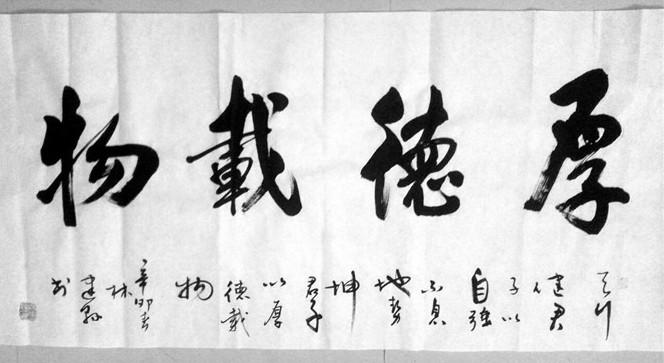 厚德載物
天行
健君
子以
自強
不息
地势
坤
君子
以厚
德載
物
辛卯春
林
建
书